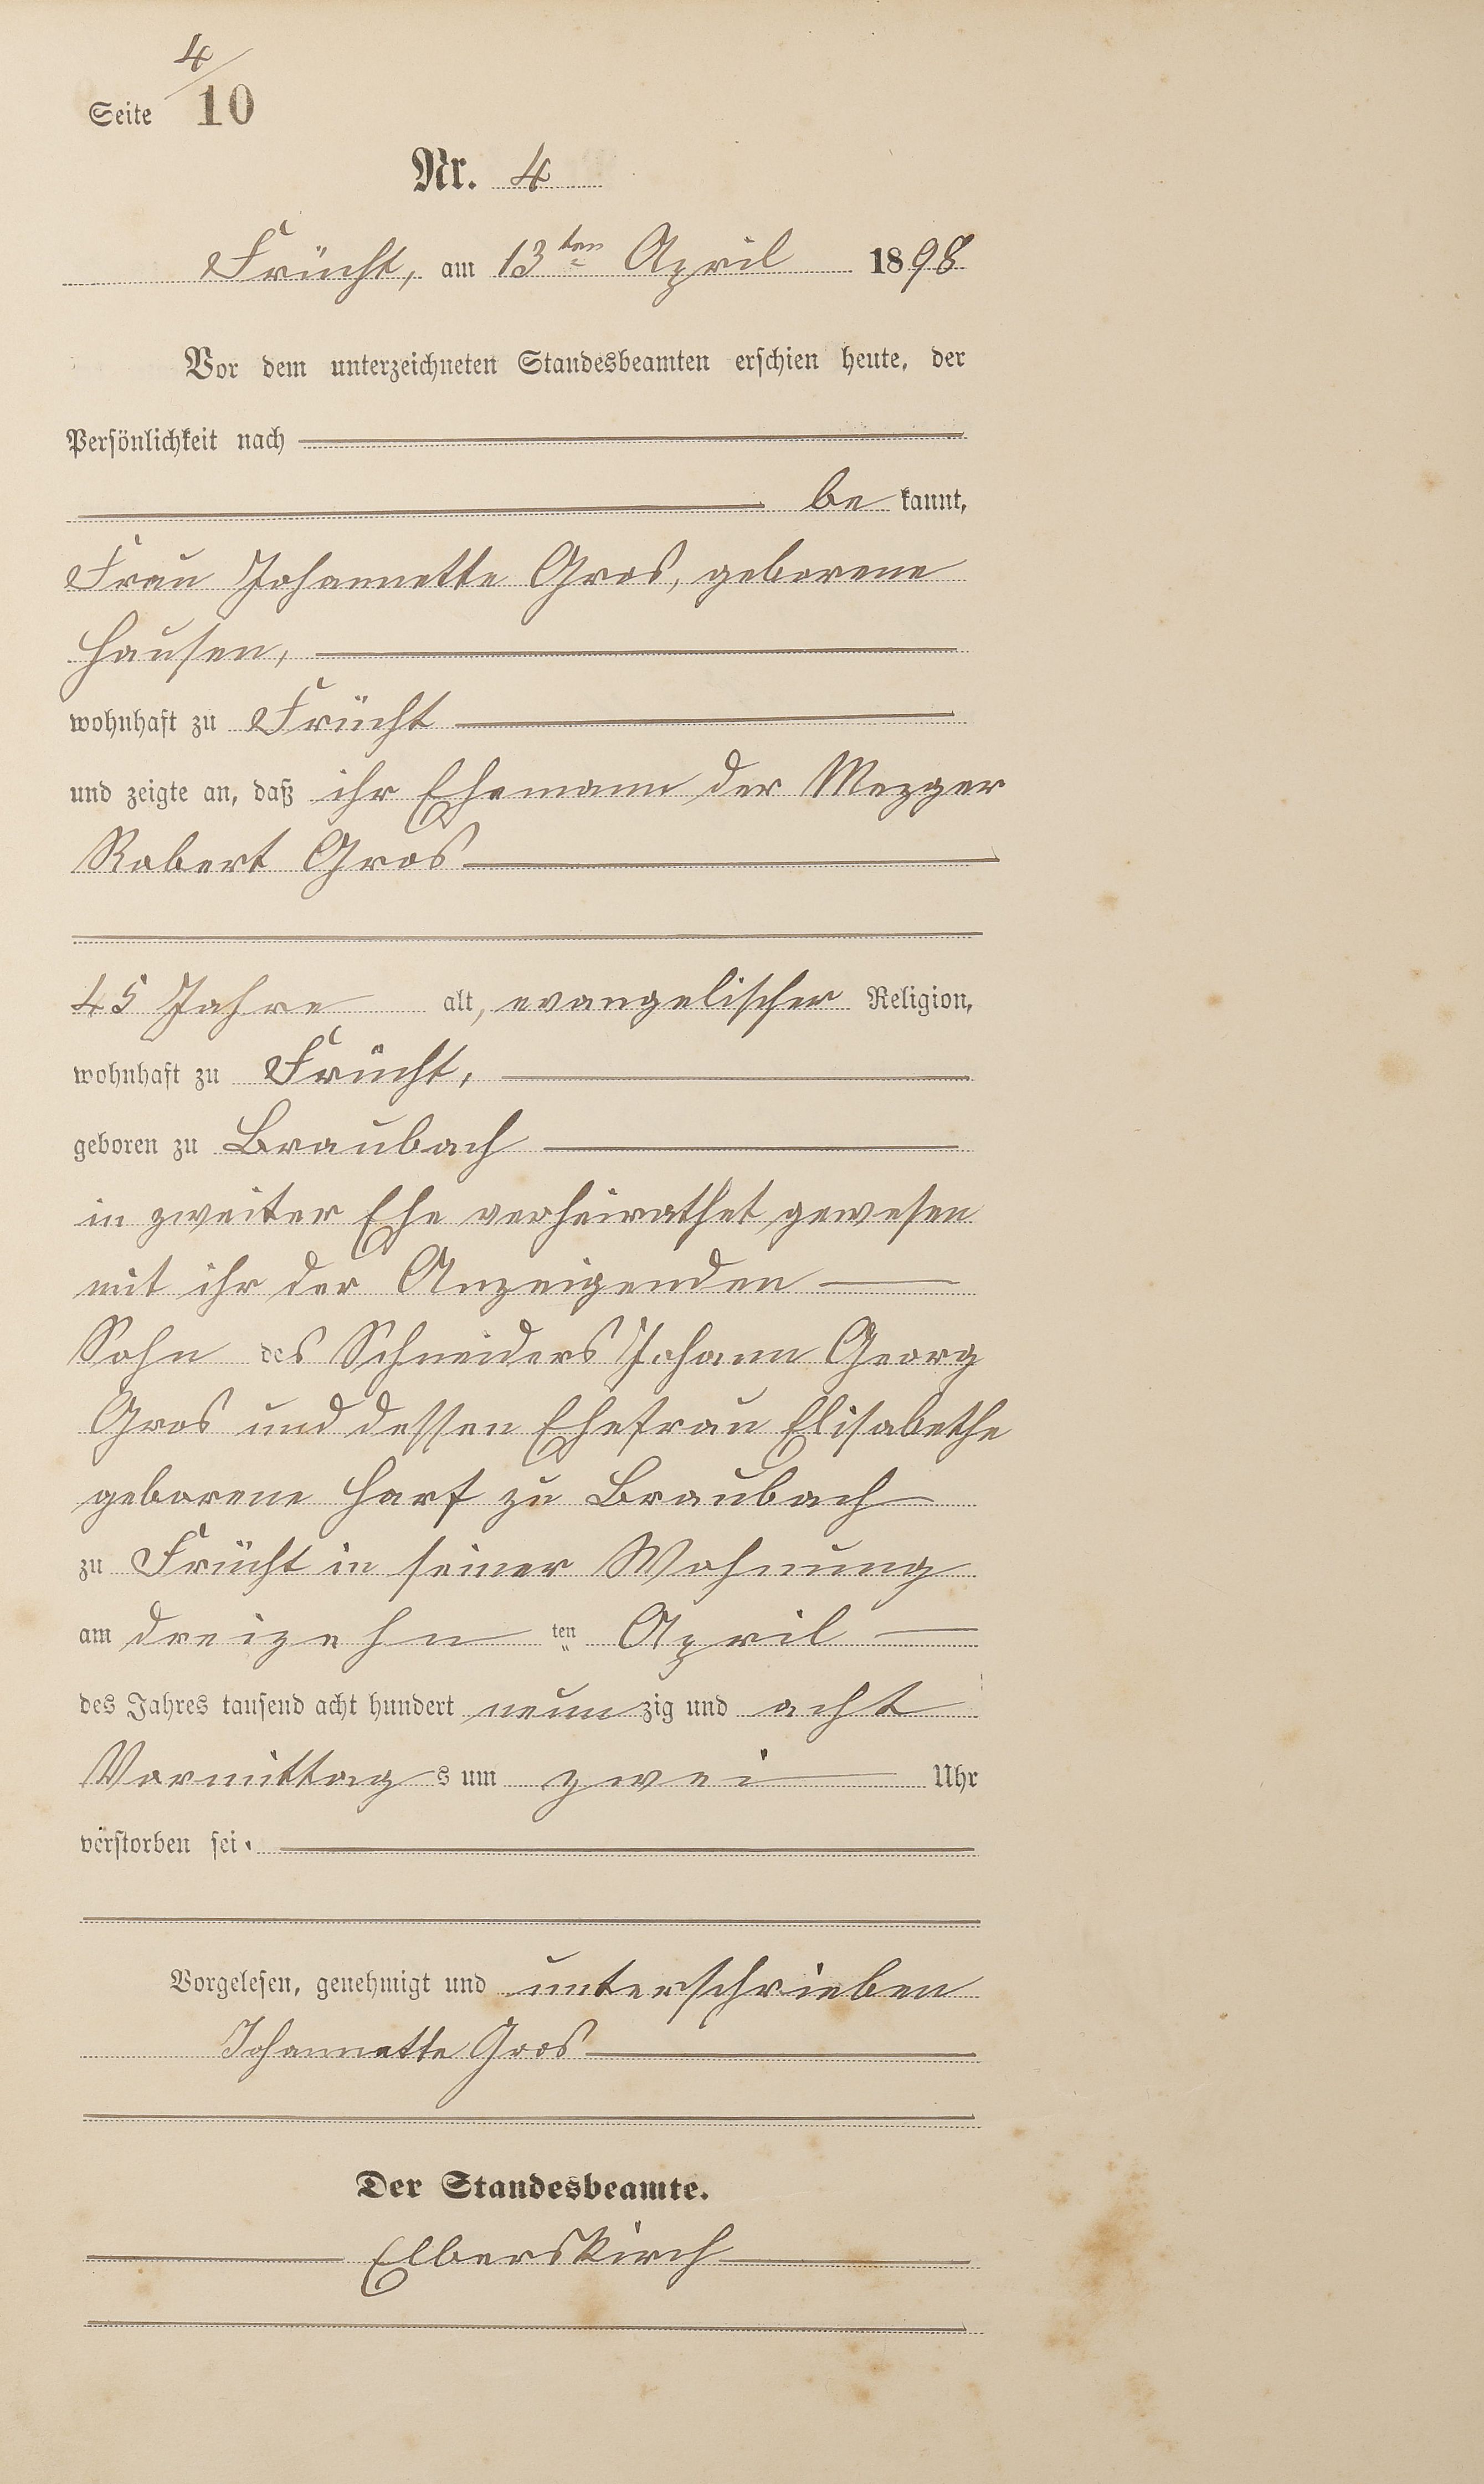 4
Seite 10
Nr. 4
Frücht, am 13ten April 1898
Vor dem unterzeichneten Standesbeamten erschien heute, der
Persönlichkeit nach
be kannt,
Frau Johannette Gros, geborene
Hausen,
wohnhaft zu Frücht
und zeigte an, daß ihr Ehemann der Mezger
Robert Gros
45 Jahre alt, evangelischer Religion,
wohnhaft zu Frücht,
geboren zu Braubach
in zweiter Ehe verheirathet gewesen
mit ihr der Anzeigenden
Sohn des Schneiders Johann Georg
Gros und dessen Ehefrau Elisabethe
geborene Harf zu Braubach
zu Frücht in seiner Wohnung
am dreizehn ten April
des Jahres tausend acht hundert neun zig und acht
Vormittag s um zwei Uhr
verstorben sei.
Vorgelesen, genehmigt und unterschrieben
Johannette Gros
Der Standesbeamte.
Elberskirch